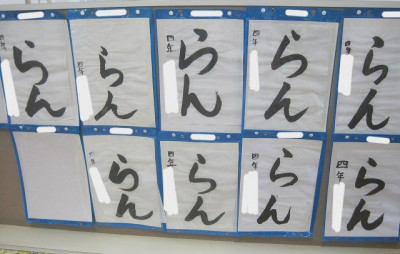 らん
四年
らん
四年
らん
四年
らん
四年
らん
四年
らん
四年
らん
四年
らん
四年
らん
四年